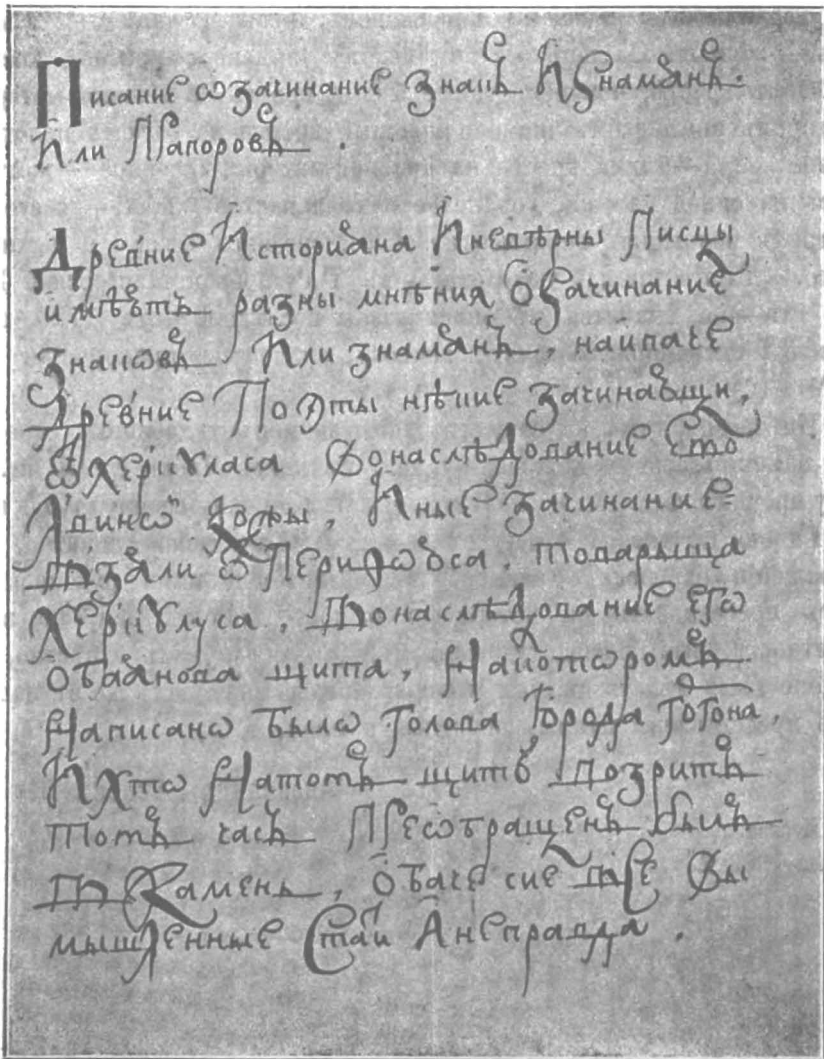 Писание ѡ зачинание знакъ И Знамянъ.
Или Прапоровъ.
Древние Историяна И невѣрны Писцы
имѣютъ разны мнѣния О Зачинание
знакѡвъ Или знамянъ, наипаче
Древние Поэты нѣкие зачинающи,
ѿ Херкѹласа вонаслѣдование Его
Иные зачинание
взяли ѿ товарыща
Херкѹлуса, вонаслѣдование егѡ
щита, Накотѡромъ
Написанѡ былѡ голова
И Хтѡ Натотъ щитъ возритъ
тотъ часъ Преѡбращенъ былъ
въ Камень, Обаче сие все Вы
мышленные Стаи Анеправда.